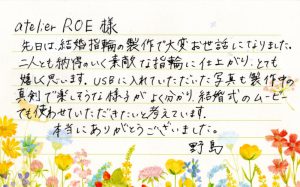 atelier ROE 様
先日は、結婚指輪の製作で大変お世話になりました。
二人とも納得のいく素敵な指輪に仕上がり、とても
嬉しく思います。USBに入れていただいた写真も製作中の
真剣で楽しそうな様子がよく分かり、結婚式のムービー
でも使わせていただきたいと考えています。
本当にありがとうございました。
野島